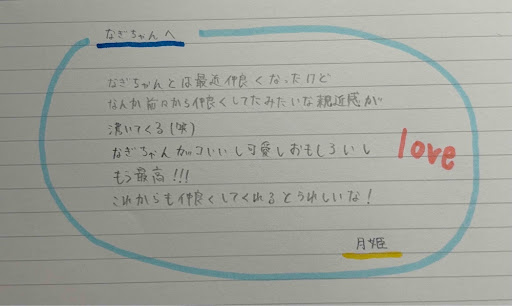 なぎちゃんへ
なぎちゃんとは最近仲良くなったけど
なんか前々から仲良くしてたみたいな親近感が
湧いてくる(笑)
なぎちゃんカッコいいし可愛しおもしろいし
もう最高!!!
love
これからも仲良くしてくれるとうれしいな!
月姫